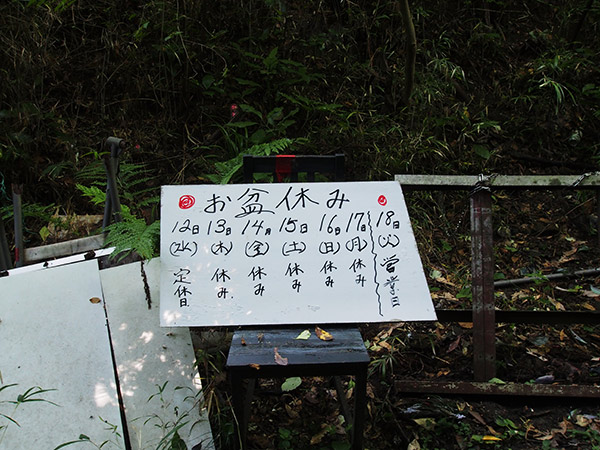 お盆休み
12日 13日 14月 15日 16日 17日 18日
(水) (木) (金) (土) (日) (月) (火)
定休日 休み 休み 休み 休み 休み 営業